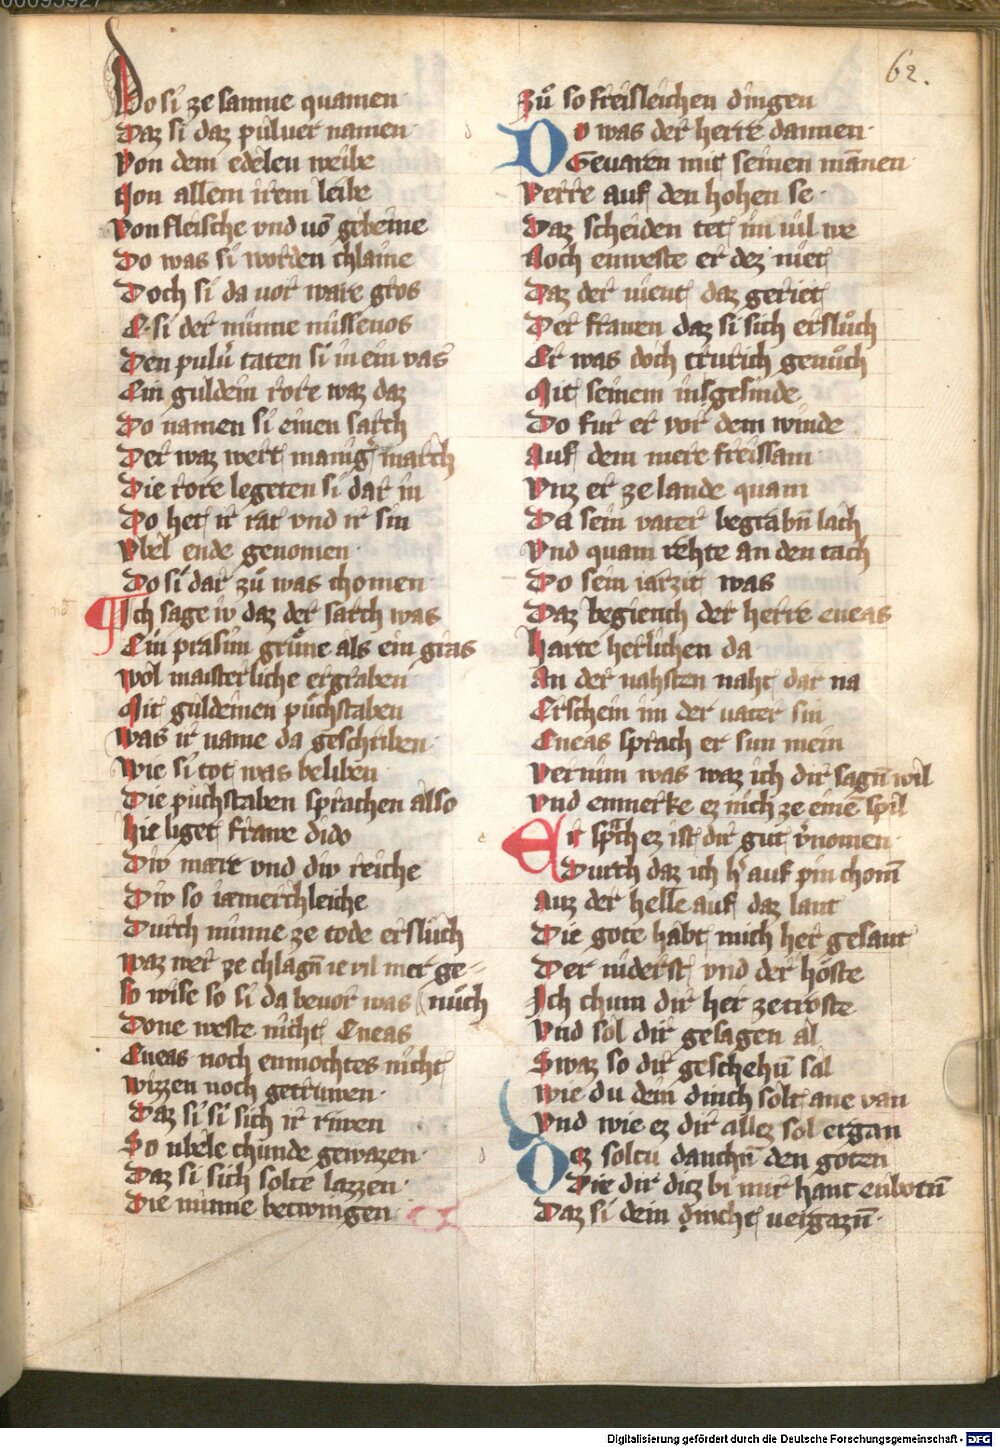 00095927
62.
Do si ze samne quamen
Daz si daz puluer namen
Von dem edelen weibe
Von allem irem leibe
Von fleische vnd uō gebeine
Do was si worden chlaine
Doch si da uor ware gros
E si der minne missenos
Den puluͥ taten si in ein vas
Ein guldein rore waz daz
Do namen si einen sarch
Der waz wert manigͥ march
Die rore legeten si dar in
Do het ir rat vnd ir sin
Vbel ende genomen
Do si dar zů was chomen
Ich sage iv daz der sarch was
Ein prasim grůne als ein gras
Wol maisterliche ergraben
Mit guldeinen půchstaben
Was ir name da geschriben
Wie si tot was beliben
Die půchstaben sprachen also
Hie liget frawe dido
Div mære vnd div reiche
Div so iæmerchleiche
Durch minne ze tode erslůch
Waz wer ze chlagn̄ ie vil mer ge-
So wise so si da beuor was (nůch
Done weste nicht Eneas
Eneas noch enmochtes nicht
Wizzen noch getruwen
Daz si si sich ir riwen
So ubele chunde gewazen
Daz si sich solte lazzen
Die minne betwingen
Zů so freisleichen dingen
Do was der herre dannen
Geuaren mit seinen mānen
Verre auf den hohen se
Daz scheiden tet im uil we
Noch enweste er dez niet
Daz der nieut daz geriet
Der frauen daz si sich erslůch
Er was doch trurich genůch
Mit seinem insgesinde
Do fur er vor dem winde
Auf dem mere freissam
Vnz er ze lande quam
Da sein vater begrabn̄ lach
Vnd quam rehte an den tach
Do sein iarzit was
Daz begiench der herre eneas
Harte herlichen da
An der nahsten naht dar na
Erschein im der uater sin
Eneas sprach er sun mein
Vernim was waz ich dir sagn̄ wil
Vnd enmerke ez nich ze einē spil
Er sprach ez ist dir gut vͥnomen
Durch daz ich hͥ auf pin chom̄
Auz der helle auf daz lant
Die gote habt mich her gesant
Der niderst vnd der hôste
Ich chum dir her ze troste
Vnd sol dir gesagen al
Swaz so dir geschehn̄ sal
Wie du dein dinch solt ane van
Vnd wie ez dir allez sol ergan
Dez soltu danchn̄ den goten
Die dir ditz bi mir hant enbotn̄
Daz si dein nicht uergazn̄
Digitalisierung gefördert durch die Deutsche Forschungsgemeinschaft - DFG